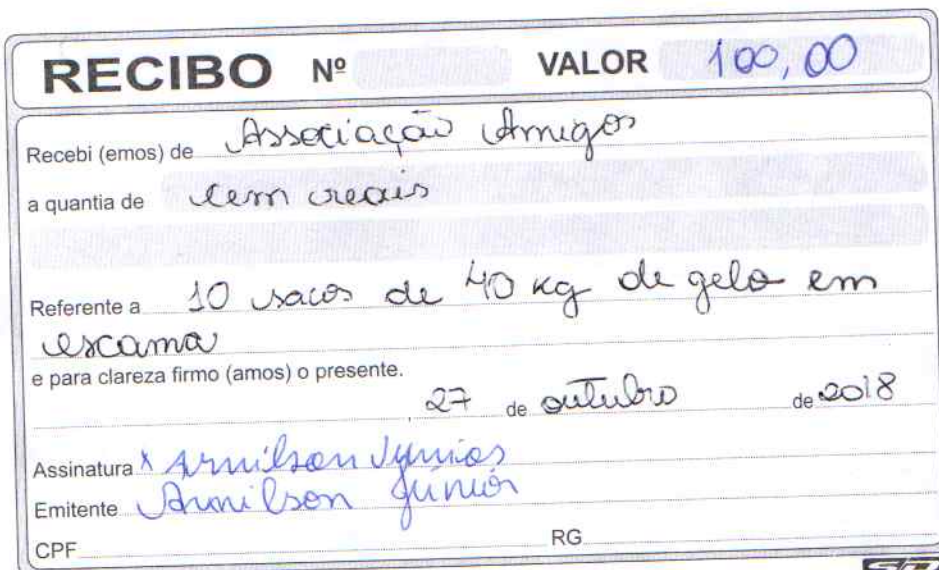 RECIBO Nº VALOR 100,00
Recebi (emos) de Associação Amigos
a quantia de cem reais
Referente a 10 sacos de 40 kg de gelo em
escama
e para clareza firmo (amos) o presente.
, 27 de outubro de 2018
Assinatura x Arnilson Junior
Emitente Arnilson Júnior
CPF RG